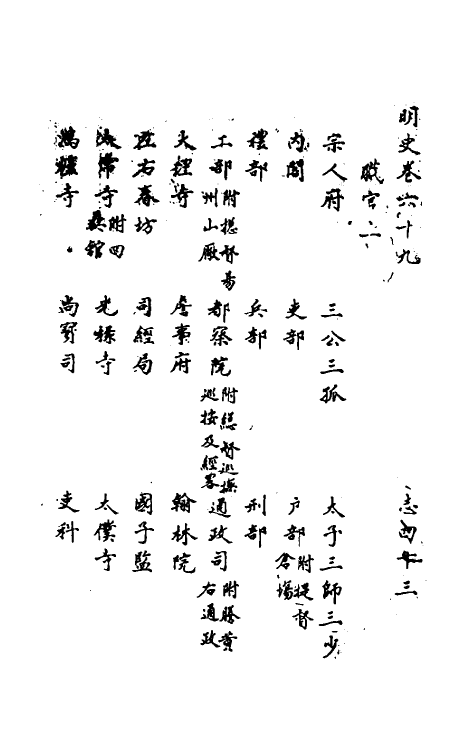 明史卷六十九　志四十三
職官二
宗人府　三公三孤　太子三師三少
內閣　吏部　户部附提督倉場
禮部　兵部　刑部
工部附提督易州山廠　都察院附總督巡撫巡按及經畧　通政司附謄黃右通政
大理寺　詹事府　翰林院
左右春坊　司經局　國子監
太常寺附四夷館　光祿寺　太僕寺
鴻臚寺　尚寶司　吏科